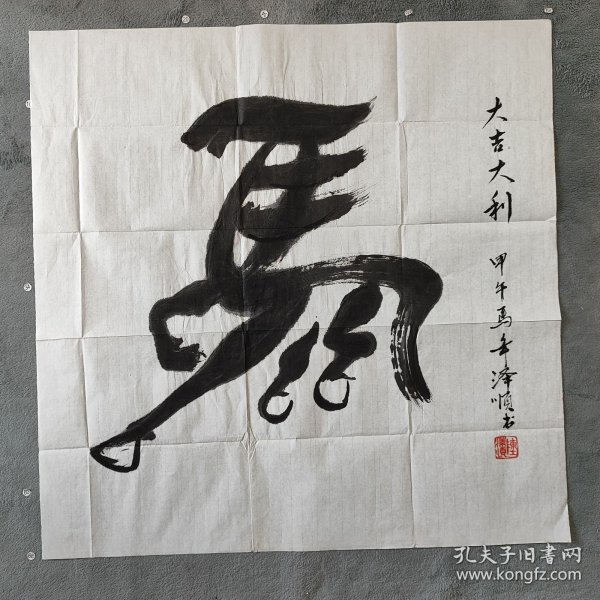 馬
大吉大利
甲午马年泽顺书
孔夫子旧书网
www.kongfz.com